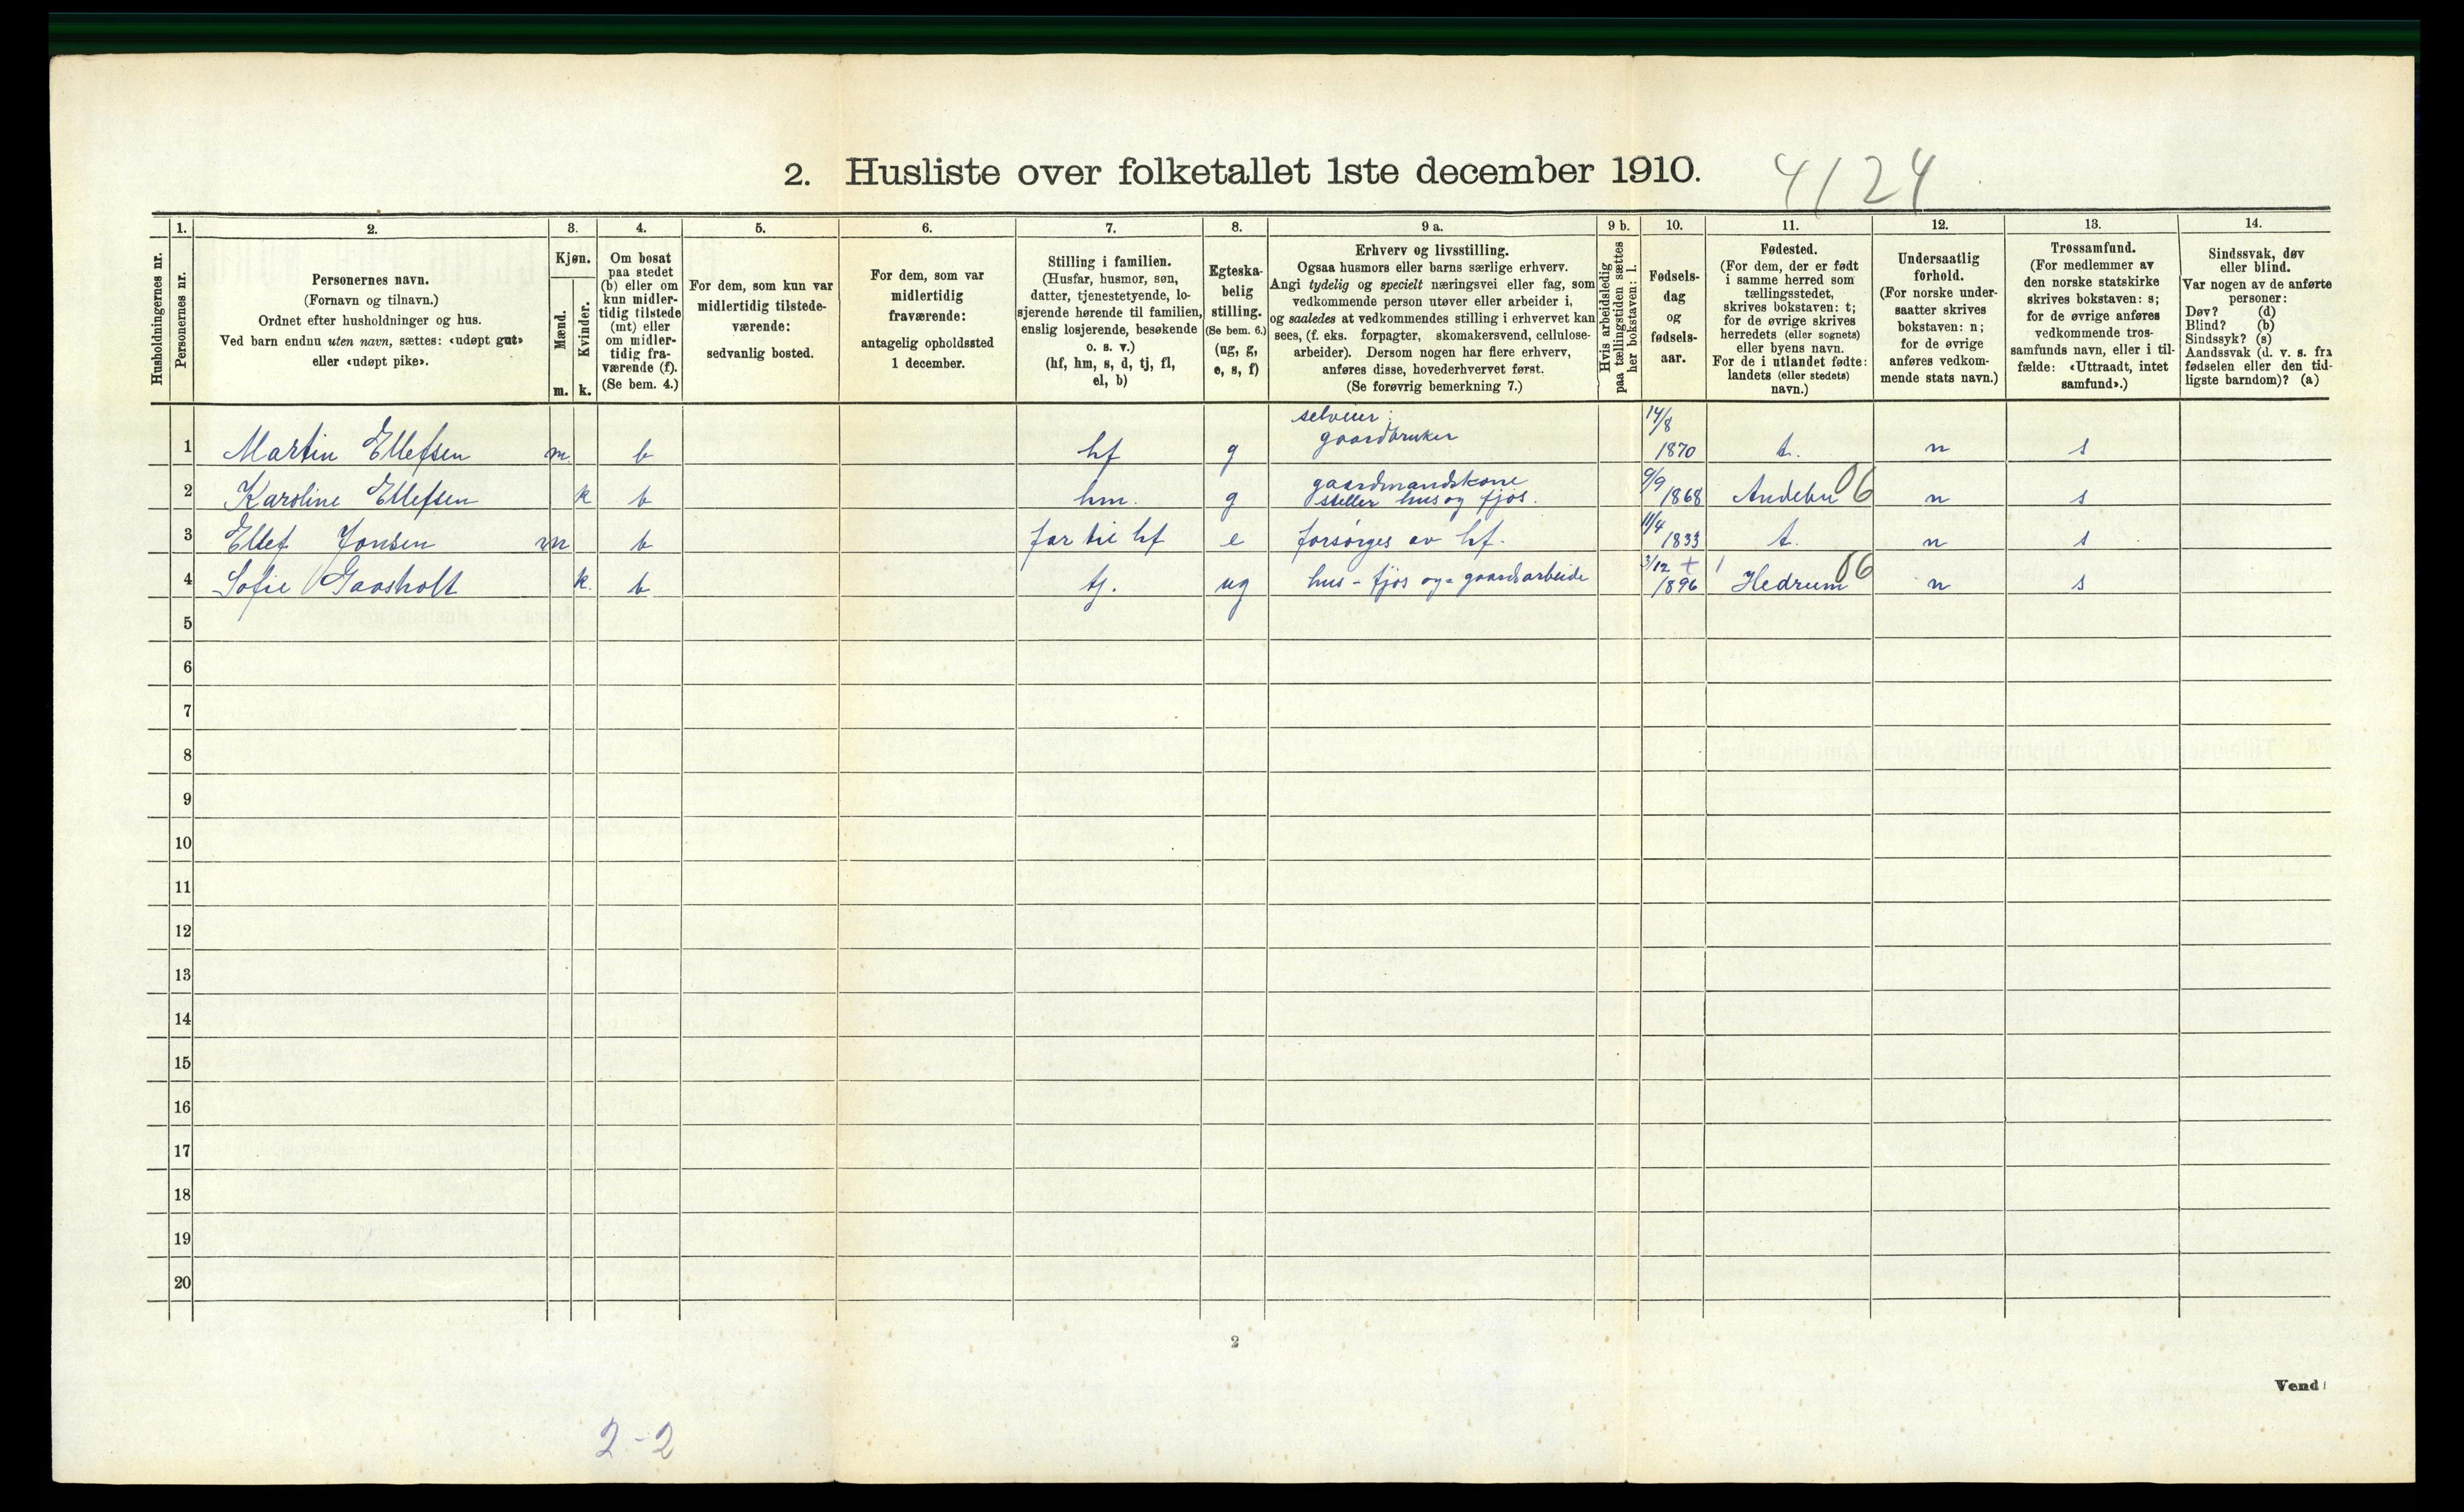 2. Husliste over folketallet 1ste december 1910. 4124
Husholdningernes nr.
1.
Personernes nr.
2.
Personernes navn.
(Fornavn og tilnavn.)
Ordnet efter husholdninger og hus.
Ved barn endnu uten navn, sættes: «udøpt gut»
eller «udøpt pike».
3.
Kjøn.
Mænd.
m.
Kvinder.
k.
4.
Om bosat
paa stedet
(b) eller om
kun midler-
tidig tilstede
(mt) eller
om midler-
tidig fra-
værende (f).
(Se bem. 4.)
5.
For dem, som kun var
midlertidig tilstede-
værende:
sedvanlig bosted.
6.
For dem, som var
midlertidig
fraværende:
antagelig opholdssted
1 december.
7.
Stilling i familien.
(Husfar, husmor, søn,
datter, tjenestetyende, lo-
sjerende hørende til familien,
enslig losjerende, besøkende
o. s. v.)
(hf, hm, s, d, tj, fl,
el, b)
8.
Egteska-
belig
stilling.
(Se bem. 6.)
(ug, g,
e, s, f)
9 a.
Erhverv og livsstilling.
Ogsaa husmors eller barns særlige erhverv.
Angi tydelig og specielt næringsvei eller fag, som
vedkommende person utøver eller arbeider i,
og saaledes at vedkommendes stilling i erhvervet kan
sees, (f. eks. forpagter, skomakersvend, cellulose-
arbeider). Dersom nogen har flere erhverv,
anføres disse, hovederhvervet først.
(Se forøvrig bemerkning 7.)
9 b.
Hvis arbeidsledig
paa tællingstiden sættes
her bokstaven: l.
10.
Fødsels-
dag
og
fødsels-
aar.
11.
Fødested.
(For dem, der er født
i samme herred som
tællingsstedet,
skrives bokstaven: t;
for de øvrige skrives
herredets (eller sognets)
eller byens navn.
For de i utlandet fødte:
landets (eller stedets)
navn.)
12.
Undersaatlig
forhold.
(For norske under-
saatter skrives
bokstaven: n;
for de øvrige
anføres vedkom-
mende stats navn.)
13.
Trossamfund.
(For medlemmer av
den norske statskirke
skrives bokstaven: s;
for de øvrige anføres
vedkommende tros-
samfunds navn, eller i til-
fælde: «Uttraadt, intet
samfund».)
14.
Sindssvak, døv
eller blind.
Var nogen av de anførte
personer:
Døv? (d)
Blind? (b)
Sindssyk? (s)
Aandssvak (d. v. s. fra
fødselen eller den tid-
ligste barndom)? (a)
selveier; 14/8
1 Martin Ellefsen m. b hf g gaardbruker 1870 t. n s
gaardmandskone 9/9
2 Karoline Ellefsen k b hm. g steller hus og fjøs. 1868 Andebu 06 n s
11/4
3 Ellef Jonsen m b far til hf e forsørges av hf. 1833 t. n s
3/12 +
4 Sofie Gaasholt k. b tj. ug hus - fjøs og - gaardsarbeide 1896 Hedrum 06 n s
5
6
7
8
9
10
11
12
13
14
15
16
17
18
19
20
2
Vend
2-2